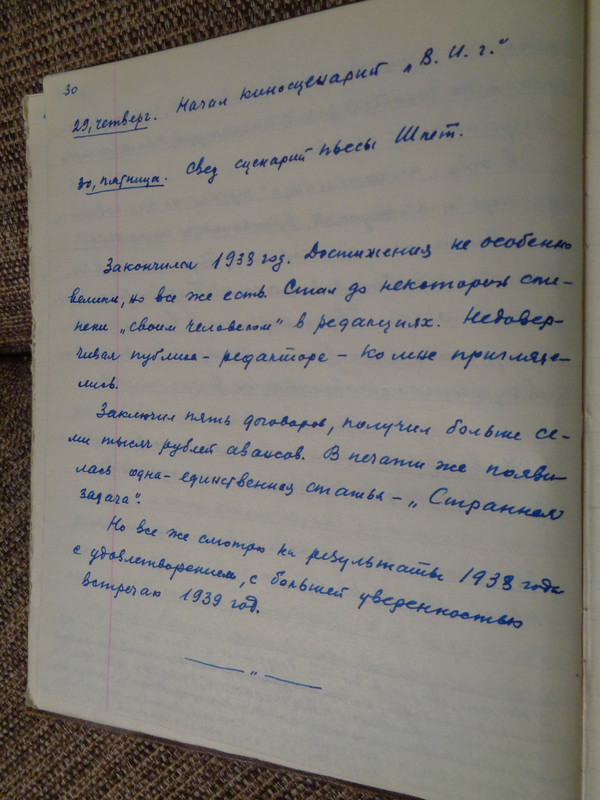 30
29, четверг. Начал киносценарий „В. И. г.“
30, пятница. Свез сценарий пьесы Шпет.
Закончился 1938 год. Достижения не особенно
велики, но все же есть. Стал до некоторой сте-
пени „своим человеком“ в редакциях. Недовер-
чивая публика - редактора - ко мне пригляде-
лись.
Заключил пять договоров, получил больше се-
ми тысяч рублей авансов. В печати же появи-
лась одна-единственная статья - „Странная
задача“.
Но все же смотрю на результаты 1938 года
с удовлетворением, с большей уверенностью
встречаю 1939 год.
— „ —